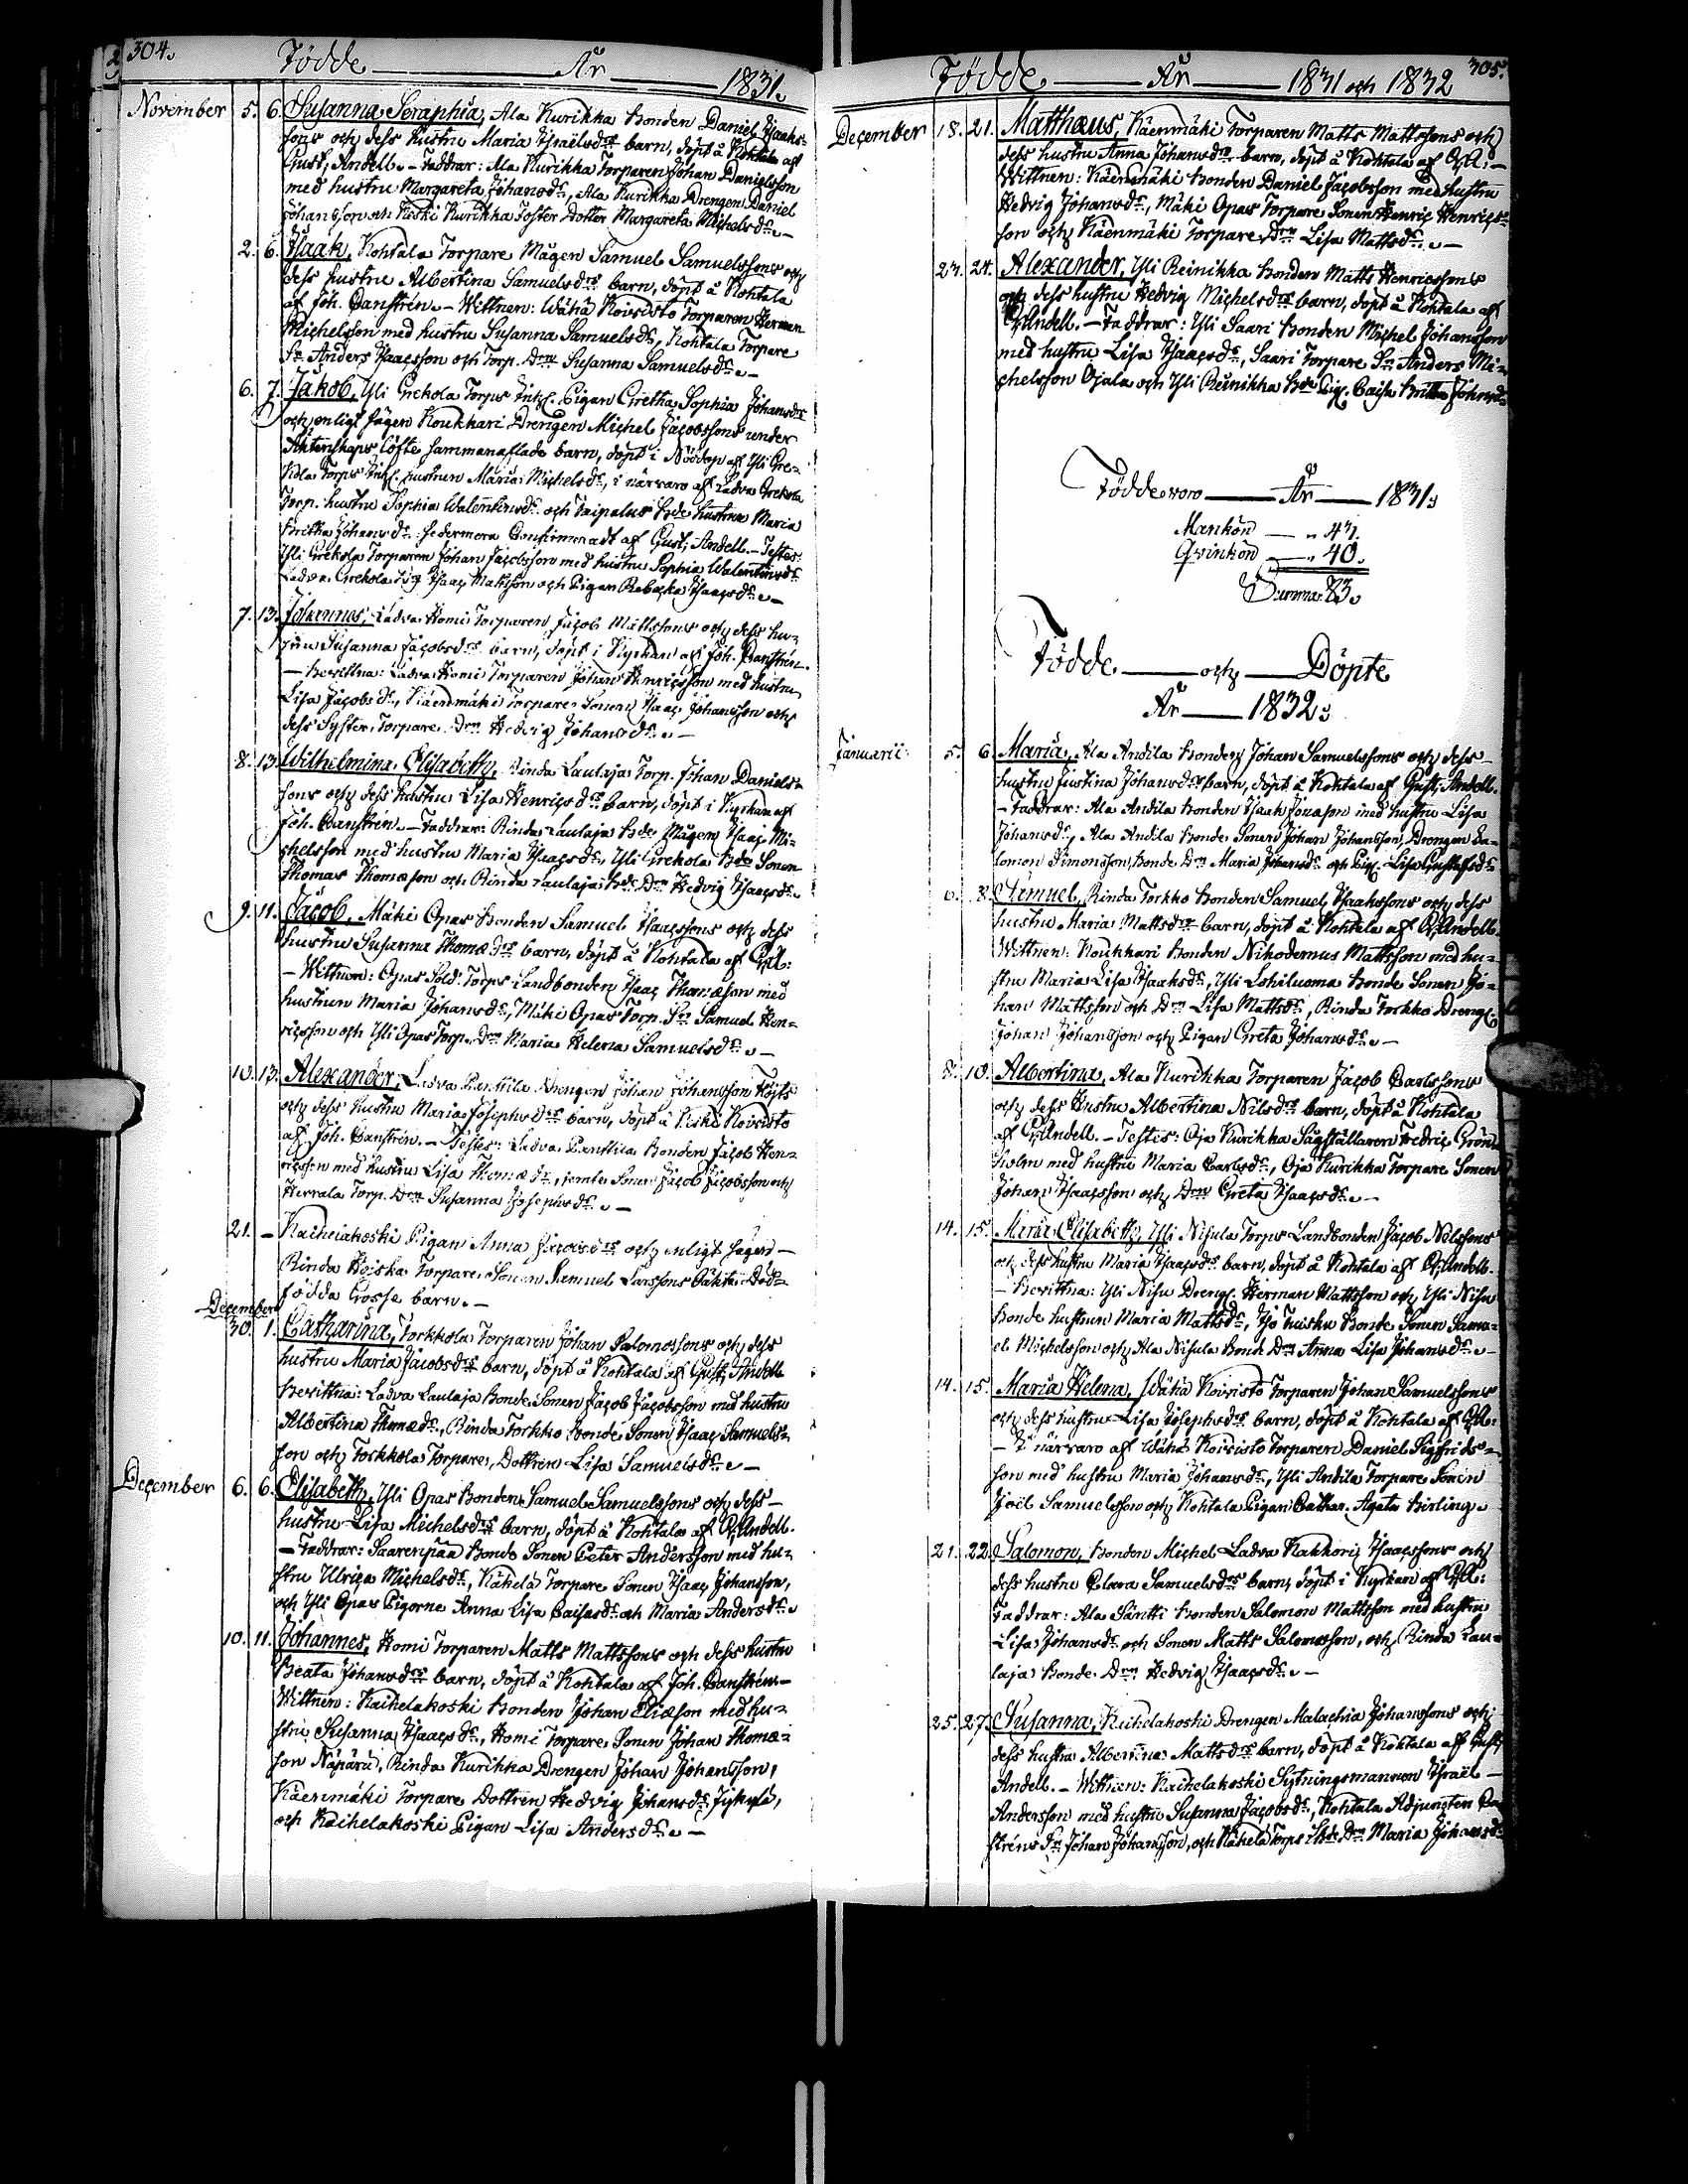 304.
Födde År 1831.
November 5. 6. Susanna Seraphia, Ala Kurikka bonden Daniel Isaaks-
sons och dess hustru Maria Israëlsdrs barn, döpt å Kohtala af
Gust. Andell. - Faddrar: Ala Kurikka Torparen Johan Danielsson
med hustru Margareta Johansdr, Ala Kurikka Drengen Daniel
Johansson och Keski Kurikka Foster Dotter Margareta Michelsdr. -
2. 6. Isaak, Kohtala Torpare Mågen Samuel Samuelssons och
dess hustru Albertina Samuelsdrs barn, döpt å Kohtala
af Joh. Canstrén. - Wittnen: Wähä Koivisto Torparen Herman
Michelsson med hustru Susanna Samuelsdr, Kohtala Torpare
Sn Anders Isaacsson och Torp. Drn Susanna Samuelsdr. -
6. 7. Jakob, Yli Grekola Torps Inh. Pigan Gretha Sophia Johansdrs
och enligt sägen Koukkari Drengen Michel Jacobssons under
Äktenskaps löfte sammanaflade barn, döpt i Nöddop af Yli Gre-
kola Torps Inh. hustrun Maria Michelsdr, i närvaro af Ladva Grekola
Torp. hustru Sophia Walentinsdr och Taipalus bde hustrun Maria
Britha Johansdr: sedermera Confirmeradt af Gust. Andell. - Testes:
Yli Grekola Torparen Johan Jacobsson med hustru Sophia Walentinsdr
Ladva Grekola Isaac Mattsson och Pigan Rebecka Isaacsdr. -
7. 13. Johannes, Ladva Homi Torparen Jacob Mattssons och dess hu-
stru Susanna Jacobsdrs barn, döpt i Kyrkan af Joh. Canstrén.
- Bevittna: Ladva Homi Torparen Johan Henricsson med hustru
Lisa Jacobsdr, Käenmäki Torpare Sonen Isaac Johansson och
dess Syster, Torpare Drn Hedvig Johansdr. -
8. 13. Wilhelmina Elisabeth, Rinda Laulaja Torp. Johan Daniels-
sons och dess hustru Lisa Henricsdrs barn, döpt i Kyrkan af
Joh. Canstrén. - Faddrar: Rinda Laulaja bde Mågen Isaac Mi-
chelsson med hustru Maria Isaacsdr, Yli Grekola bde Sonen
Thomas Thomæson och Rinda Laulaja bde Drn Hedvig Isaacsdr.
9. 11. Jacob, Mäki Opas bonden Samuel Isaacssons och dess
hustru Susanna Thomædrs barn, döpt å Kohtala af G. A:
- Wittnen: Opas Sold. Torps Landbonden Isaac Thomæson med
hustrun Maria Johansdr, Mäki Opas Torp. Sn Samuel Hen-
ricsson och Yli Opas Torp. Drn Maria Helena Samuelsdr. -
10. 13. Alexander, Ladva Panttila Drengen Johan Johansson Höjts
och dess hustru Maria Josephsdrs barn, döpt i Keski Koivisto
af Joh. Canstrén. - Testes: Ladva Panttila Bonden Jacob Hen-
ricsson med hustru Lisa Thomædr, jemte Sonen Jacob Jacobsson och
Herrala Torp. Drn Susanna Josephsdr. -
21. - Kaihelakoski Pigan Anna Jacobsdrs och enligt sägen -
Rinda Hejska Torpare Sonen Samuel Larssons oäkta Död-
födda Gosse barn. -
December
30. 1. Catharina, Torkkola Torparen Johan Salomonssons och dess
hustru Maria Jacobsdrs barn, döpt å Kohtala af Gust. Andell
Bevittna: Ladva Laulaja Bonde Sonen Jacob Jacobsson med hustru
Albertina Thomædr, Rinda Torkko Bonde Sonen Isaac Samuels-
son och Torkkola Torpare Dottren Lisa Samuelsdr. -
December 6. 6. Elisabeth, Yli Opas Bonden Samuel Samuelssons och dess -
hustru Lisa Michelsdrs barn, döpt å Kohtala af G. Andell.
- Faddrar: Saarenpää Bonde Sonen Peter Andersson med hu-
stru Ulrica Michelsdr, Käkelä Torpare Sonen Isaac Johansson,
och Yli Opas Pigorne Anna Lisa Caisasdr och Maria Andersdr.
10. 11. Johannes, Homi Torparen Matts Mattssons och dess hustru
Beata Johansdrs barn, döpt å Kohtala af Joh. Canstrén -
Wittnen: Kaihelakoski Bonden Johan Eliæson med hu-
stru Susanna Isaacsdr, Homi Torpare Sonen Johan Thomæ-
son Näpärä, Rinda Kurikka Drengen Johan Johansson,
Käenmäki Torpare Dottren Hedvig Johansdr Jykylä,
och Kaihelakoski Pigan Lisa Andersdr. -
305.
Födde År 1831 och 1832
December 18. 21. Matthæus, Käenmäki Torparen Matts Mattssons och
dess hustru Anna Johansdrs barn, döpt å Kohtala af G. A: -
Wittnen: Käenmäki bonden Daniel Jacobsson med hustru
Hedvig Johansdr, Mäki Opas Torpare Sonen Henric Henrics-
son och Käenmäki Torpare Drn Lisa Mattsdr. -
23. 24. Alexander, Yli Reinikka bonden Matts Henricssons
och dess hustru Hedvig Michelsdrs barn, döpt å Kohtala af
G. Andell. - Faddrar: Yli Saari bonden Michel Johansson
med hustru Lisa Isaacsdr, Saari Torpare Sn Anders Mi-
chelsson Ojala och Yli Reinikka bde Pig. Caisa Britta Johansdr
Födde voro År 1831:
Mankön - " 43.
Qvinkön - " 40.
Summa 83.
Födde och Döpte
År 1832:
Januarii: 5. 6. Maria, Ala Andila bonden Johan Samuelssons och dess -
hustru Justina Johansdrs barn, döpt å Kohtala af Gust. Andell.
- Faddrar: Ala Andila bonden Isaak Jonasson med hustru Lisa
Johansdr, Ala Andila Bonde Sonen Johan Johansson, Drengen Sa-
lomon Simonsson, Bonde Drn Maria Johansdr och Pig. Lisa Gustafsdr
6. 8. Samuel, Rinda Torkko Bonden Samuel Isaakssons och dess
hustru Maria Mattsdrs barn, döpt å Kohtala af G. Andell.
Wittnen: Koukkari bonden Nikodemus Mattsson med hu-
stru Maria Lisa Isaaksdr, Yli Lohiluoma Bonde Sonen Jo-
han Mattsson och Drn Lisa Mattsdr, Rinda Torkko Dreng.
Johan Johansson och Pigan Greta Johansdr. -
8. 10. Albertina, Ala Kurikka Torparen Jacob Carlssons
och dess Hustru Albertina Nilsdrs barn, döpt å Kohtala
af G. Andell. - Testes: Oja Kurikka Sågställaren Fredric Grön-
holm med hustru Maria Carlsdr, Oja Kurikka Torpare Sonen
Johan Isaacsson och Drn Greta Isaacsdr. -
14. 15. Maria Elisabeth, Yli Nisula Torps Landbonden Jacob Nilssons
och dess hustru Maria Isaacsdrs barn, döpt å Kohtala af G. Andell.
- Bevittna: Yli Nisu Dreng. Herman Mattsson och Yli Nisu
Bonde hustrun Maria Mattsdr, Iso Tuisku Bonde Sonen Samu-
el Michelsson och Ala Nisula Bond. Drn Anna Lisa Johansdr. -
14. 15. Maria Helena, Wähä Koivisto Torparen Johan Samuelssons
och dess hustru Lisa Josephsdrs barn, döpt å Kohtala af G. A:
- I närvaro af Wähä Koivisto Torparen Daniel Sigfrids-
son med hustru Maria Johansdr, Yli Andila Torpare Sonen
Joël Samuelsson och Kohtala Pigan Cathar. Agata Birling.
21. 22. Salomon, bonden Michel Ladva Kakkori Isaacssons och
dess hustru Clara Samuelsdrs barn, döpt i Kyrkan af G. A:
Faddrar: Ala Säntti bonden Salomon Mattsson med hustru
Lisa Johansdr och Sonen Matts Salomsson, och Rinda Lau-
laja Bonde Drn Hedvig Isaacsdr. -
25. 27. Susanna, Kaihelakoski Drengen Malachia Johanssons och
dess hustru Albertina Mattsdrs barn, döpt å Kohtala af Gust.
Andell. - Wittnen: Kaihelakoski Sytningsmannen Israël -
Andersson med hustru Susanna Jacobsdr, Kohtala Adjuncten Can-
stréns Sn Johan Johansson, och Käkelä Torps Drn Maria Johansdr